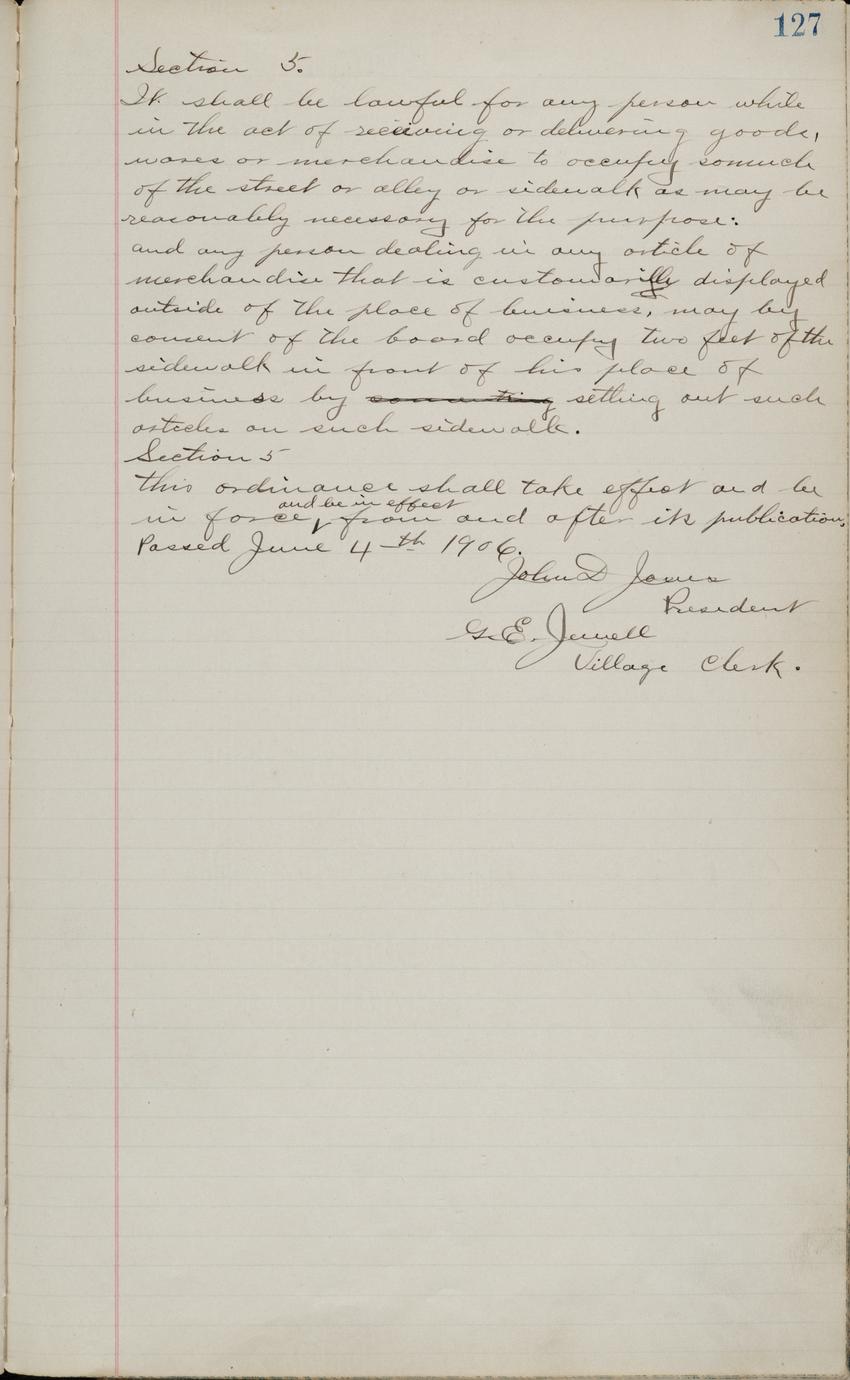 127
Section 5.
It shall be lawful for any person while
in the act of receiving or delivering goods,
wares or merchandise to occupy somuch
of the street or alley or sidewalk as may be
reasonably necessary for the purpose:
and any person dealing in any article of
merchandise that is customarily displayed
outside of the place of buisness, may by
consent of the board occupy two feet of the
sidewalk in front of his place of
business by setting out such
articles on such sidewalk.
Section 5
This ordinance shall take effect and be
and be in effect
in force, from and after its publication,
Passed June 4th 1906.
John D Jones
President
G. E. Jewell
Village Clerk.